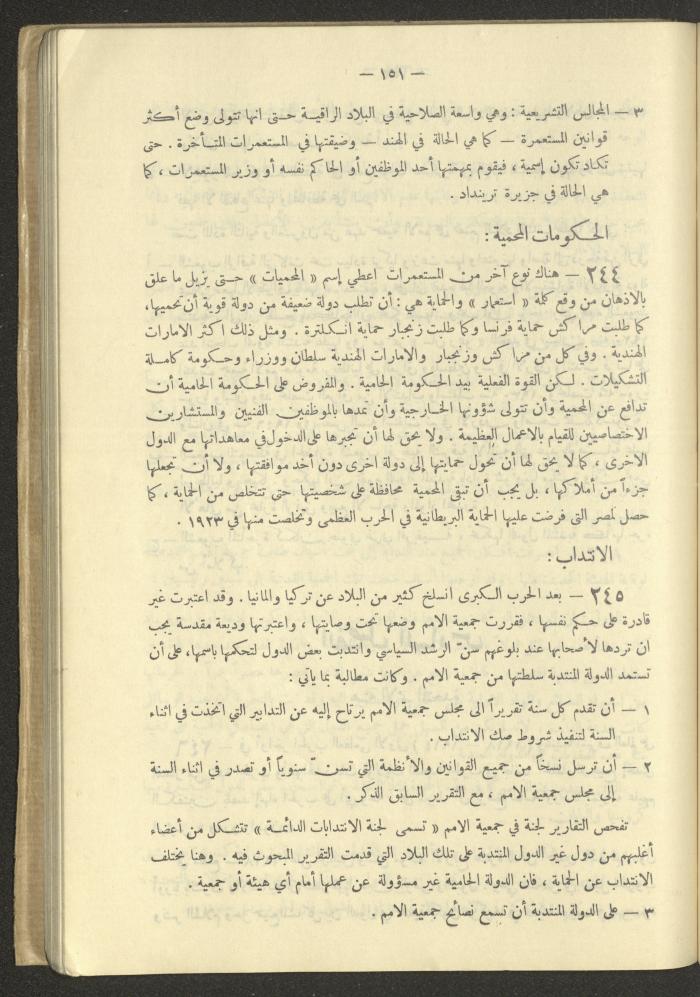 — ١٥١ —
٣ — المجالس التشريعية : وهي واسعة الصلاحية في البلاد الراقية حتى انها تتولى وضع أكثر
قوانين المستعمرة — كما هي الحالة في الهند — وضيقتها في المستعمرات المتأخرة . حتى
تكاد تكون إسمية ، فيقوم بمهمتها أحد الموظفين أو الحاكم نفسه أو وزير المستعمرات ، كما
هي الحالة في جزيرة ترينداد .
الحكومات المحمية :
٢٤٤ — هناك نوع آخر من المستعمرات اعطي إسم « المحميات » حتى يزيل ما علق
بالاذهان من وقع كلمة « استعمار » والحماية هي : أن تطلب دولة ضعيفة من دولة قوية أن تحميها،
كما طلبت مراكش حماية فرنسا وكما طلبت زنجبار حماية انكلترة . ومثل ذلك اكثر الامارات
الهندية . وفي كل من مراكش وزنجبار والامارات الهندية سلطان ووزراء وحكومة كاملة
التشكيلات . لكن القوة الفعلية بيد الحكومة الحامية . والمفروض على الحكومة الحامية أن
تدافع عن المحمية وأن تتولى شؤونها الخارجية وأن تمدها بالموظفين الفنيين والمستشارين
الاختصاصيين للقيام بالاعمال العظيمة . ولا يحق لها أن تجبرها على الدخول في معاهداتها مع الدول
الاخرى ، كما لا يحق لها أن تحول حمايتها إلى دولة اخرى دون أخد موافقتها ، ولا أن تجعلها
جزءاً من أملاكها ، بل يجب أن تبقى المحمية محافظة على شخصيتها حتى تتخلص من الحماية ، كما
حصل لمصر التى فرضت عليها الحماية البريطانية في الحرب العظمى وتخلصت منها في ١٩٢٣ .
الانتداب :
٢٤٥ — بعد الحرب الكبرى انسلخ كثير من البلاد عن تركيا والمانيا . وقد اعتبرت غير
قادرة على حكم نفسها ، فقررت جمعية الامم وضعها تحت وصايتها ، واعتبرتها وديعة مقدسة يجب
ان تردها لأصحابها عند بلوغهم سنّ الرشد السياسي وانتدبت بعض الدول لتحكمها باسمها، على أن
تستمد الدولة المنتدبة سلطتها من جمعية الامم . وكانت مطالبة بما يأتي :
١ — أن تقدم كل سنة تقريراً الى مجلس جمعية الامم يرتاح إليه عن التدابير التي اتخذت في اثناء
السنة لتنفيذ شروط صك الانتداب .
٢ — أن ترسل نسخاً من جميع القوانين والأنظمة التي تسنّ سنوياً أو تصدر في اثناء السنة
إلى مجلس جمعية الامم ، مع التقرير السابق الذكر .
تفحص التقارير لجنة في جمعية الامم « تسمى لجنة الانتدابات الدائمة » تتشكل من أعضاء
أغلبهم من دول غير الدول المنتدبة على تلك البلاد التي قدمت التقرير المبحوث فيه . وهنا يختلف
الانتداب عن الحماية ، فان الدولة الحامية غير مسؤولة عن عملها أمام أي هيئة أو جمعية .
٣ — على الدولة المنتدبة أن تسمع نصائح جمعية الامم .